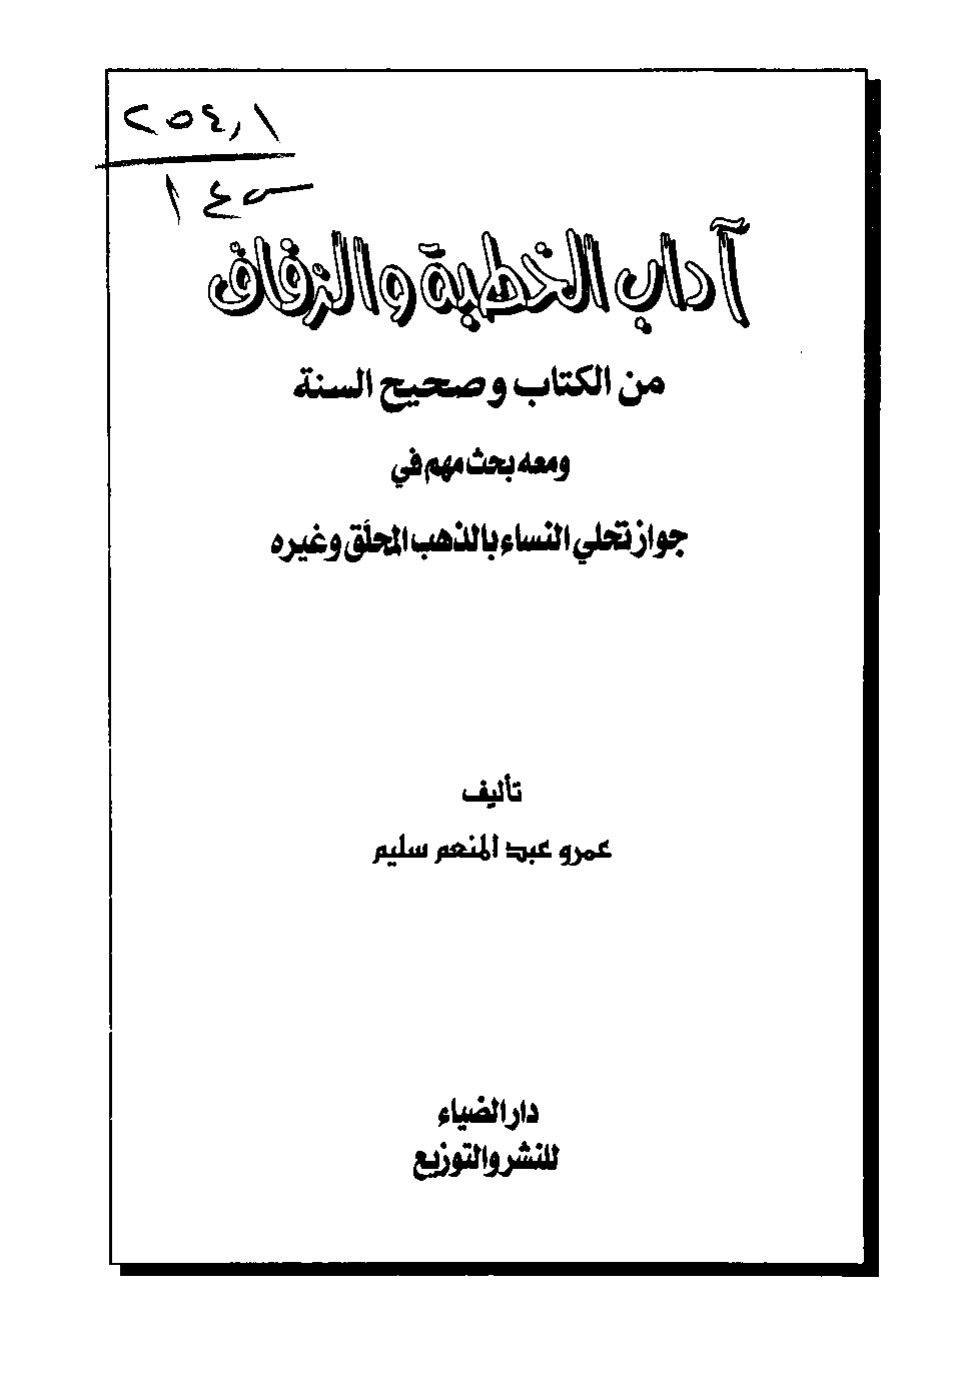 ٢٥٤٫١
١٤٥س
آداب الخطبة والزفاف
من الكتاب وصحيح السنة
ومعه بحث مهم في
جواز تحلي النساء بالذهب المحلَّق وغيره
تأليف
عمرو عبد المنعم سليم
دار الضياء
للنشر والتوزيع